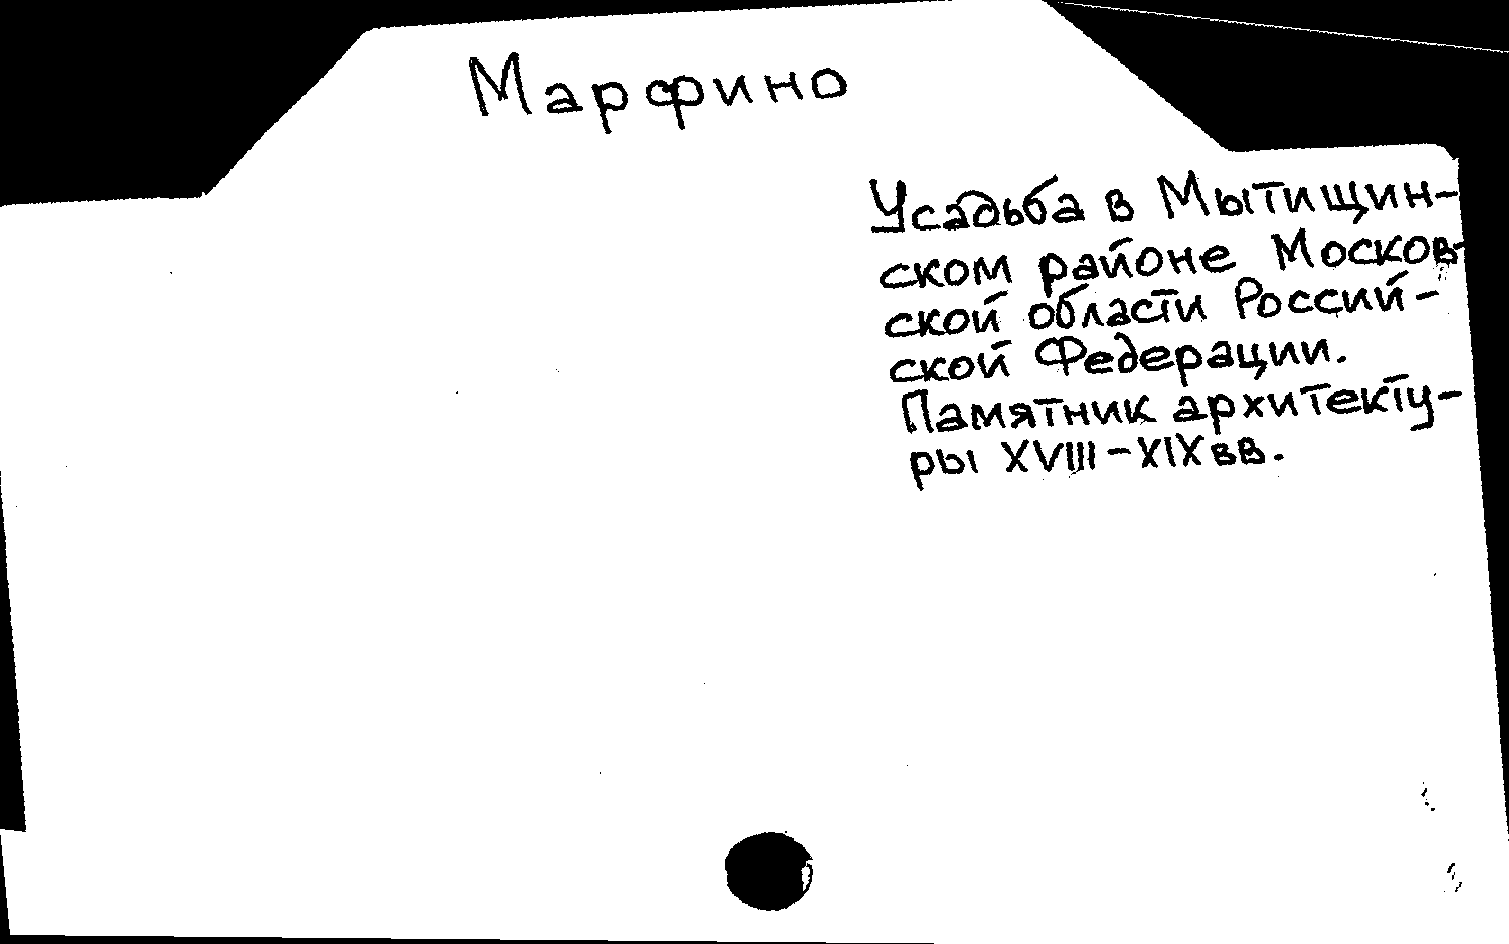 Марфино
Усадьба в Мытищин-
ском районе Москов-
ской области Россий-
ской Федерации.
Памятник архитекту-
ры XVIII-XIX вв.